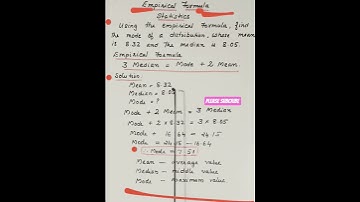 Empirical Formula
Statistics
Using the Empirical Formula, find
the mode of a distribution whose mean
is 8.32 and the median is 8.05.
Empirical Formula
3 Median = Mode + 2 Mean.
Solution:
Mean = 8.32
Median = 8.05
Mode = ?
PLEASE SUBSCRIBE
Mode + 2 Mean = 3 Median
Mode + 2 × 8.32 = 3 × 8.05
Mode + 16.64 = 24.15
Mode = 24.15 - 16.64
Mode = 7.51
Mean - average value
Median - middle value
Mode - maximum value